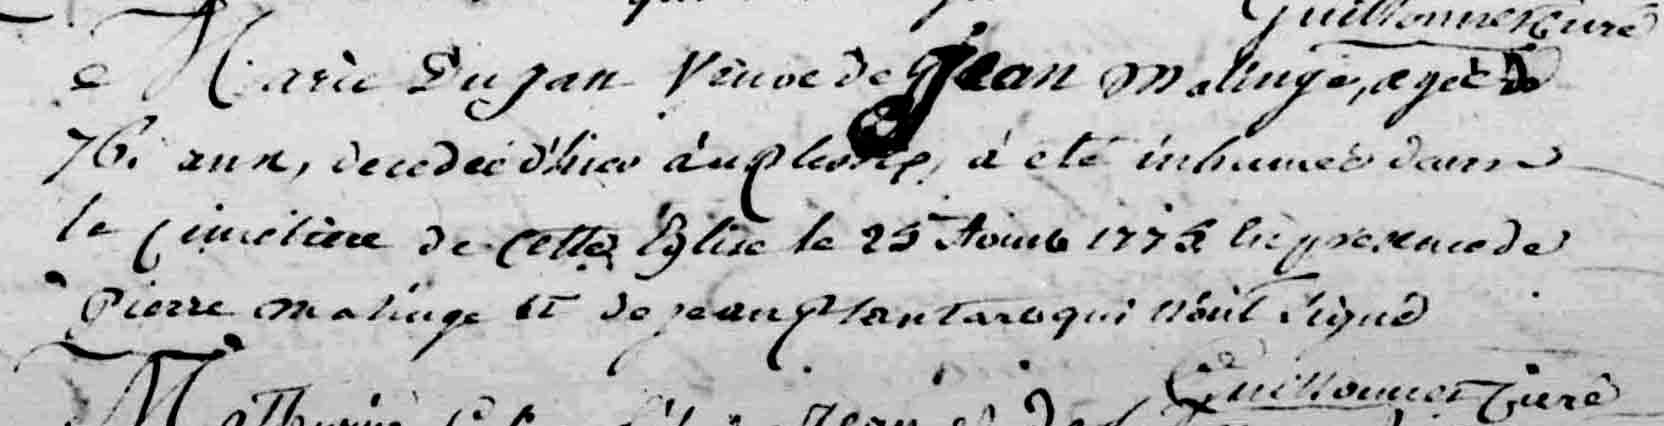 Guillonnet Curé
Marie Dujan Veuve de jean malinge, agée de
76. ans, decedeé d'hier à a été inhumeé dans
le Cimetiere de Cette Eglise le 25 1775 en presence de
Pierre malinge et de jean plantard qui n'ont signé
Guillonnet Curé
jean